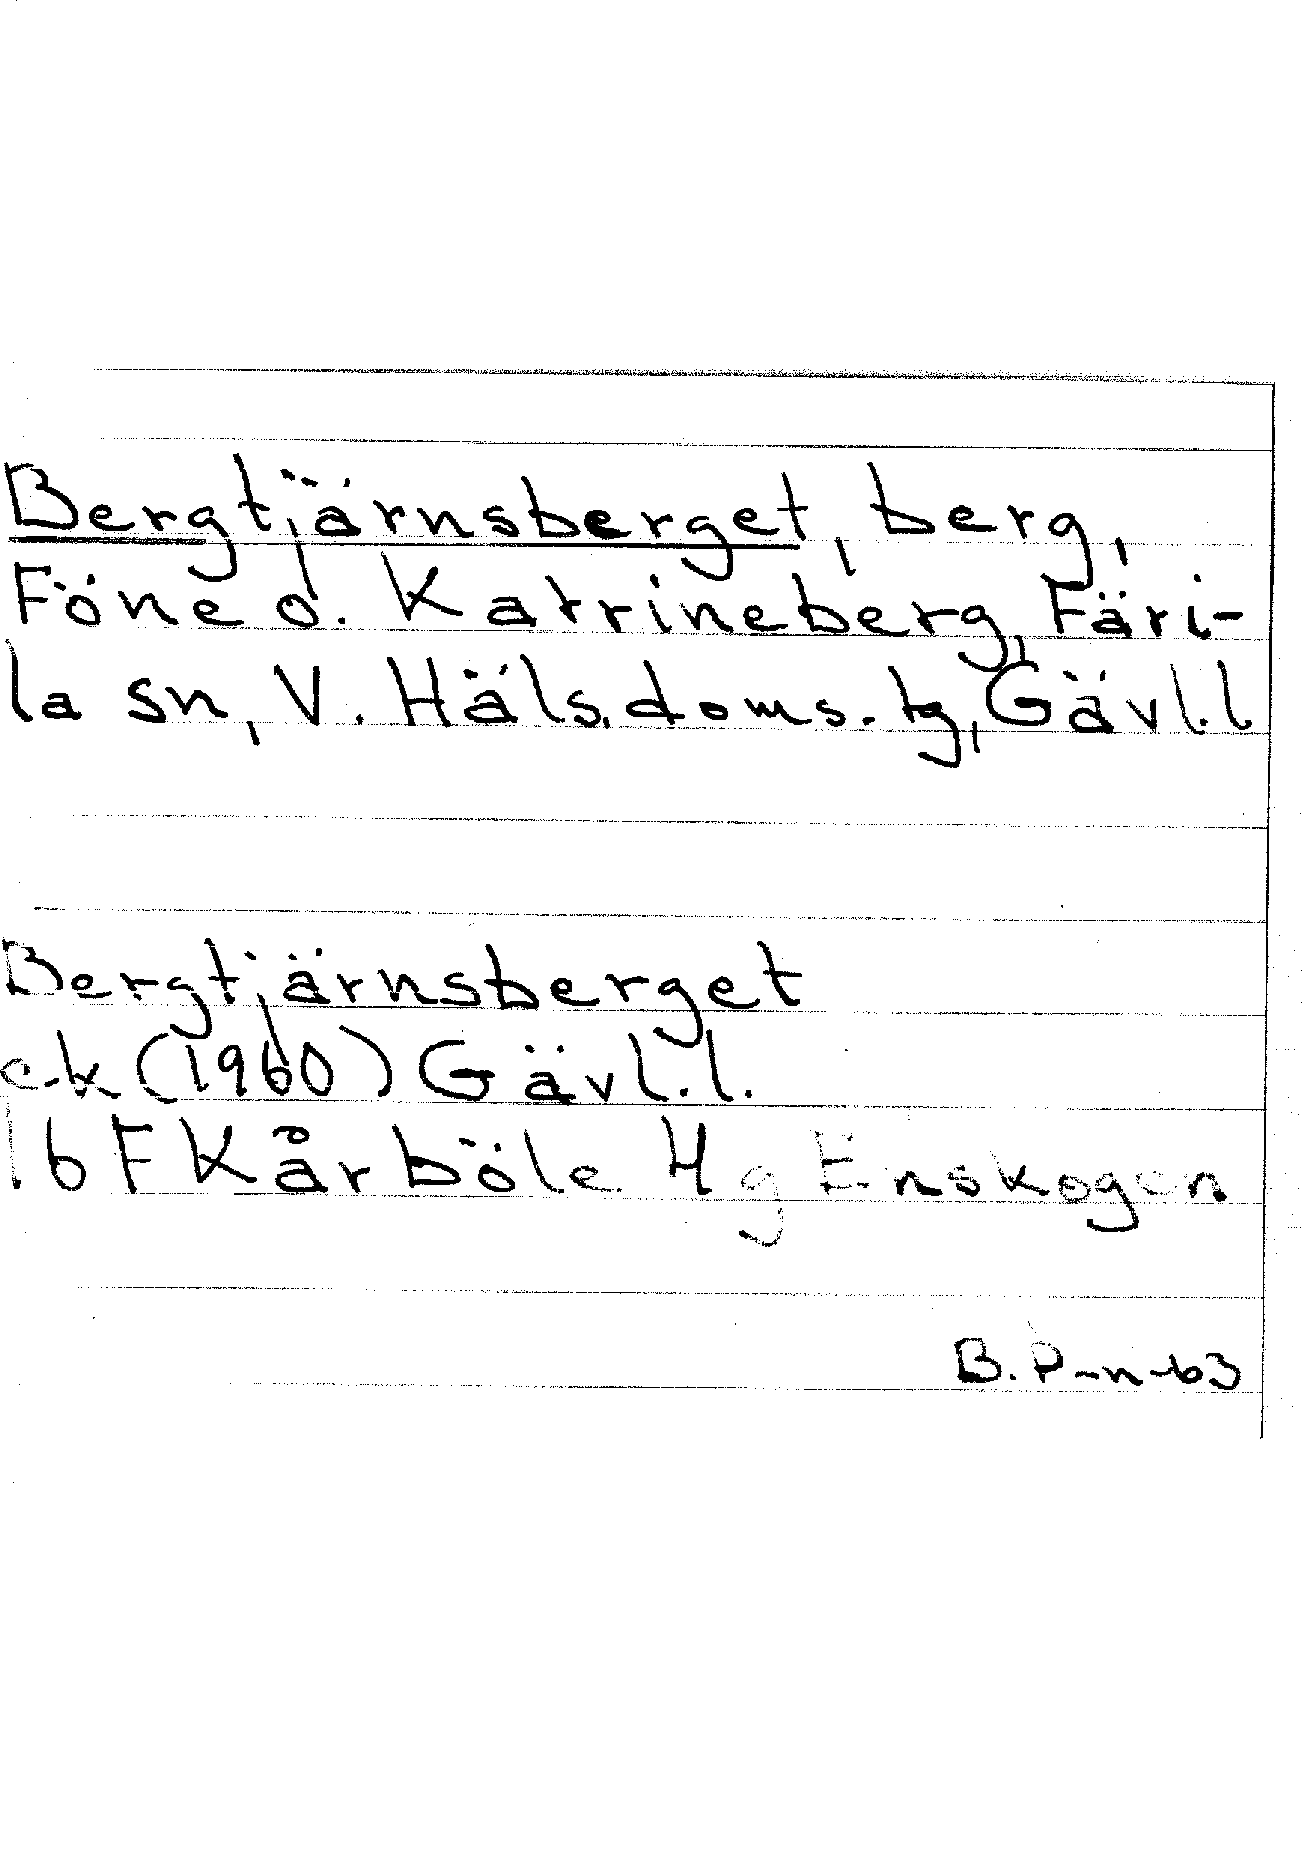 Bergtjärnsberget, berg,
Föne o. Katrineberg, Färi-
la sn, V. Häls. doms. tg, Gävl.l
Bergtjärnsberget
ek (1960) Gävl.l.
16 F Kårböle Hg Enskogen
B. P-n -63